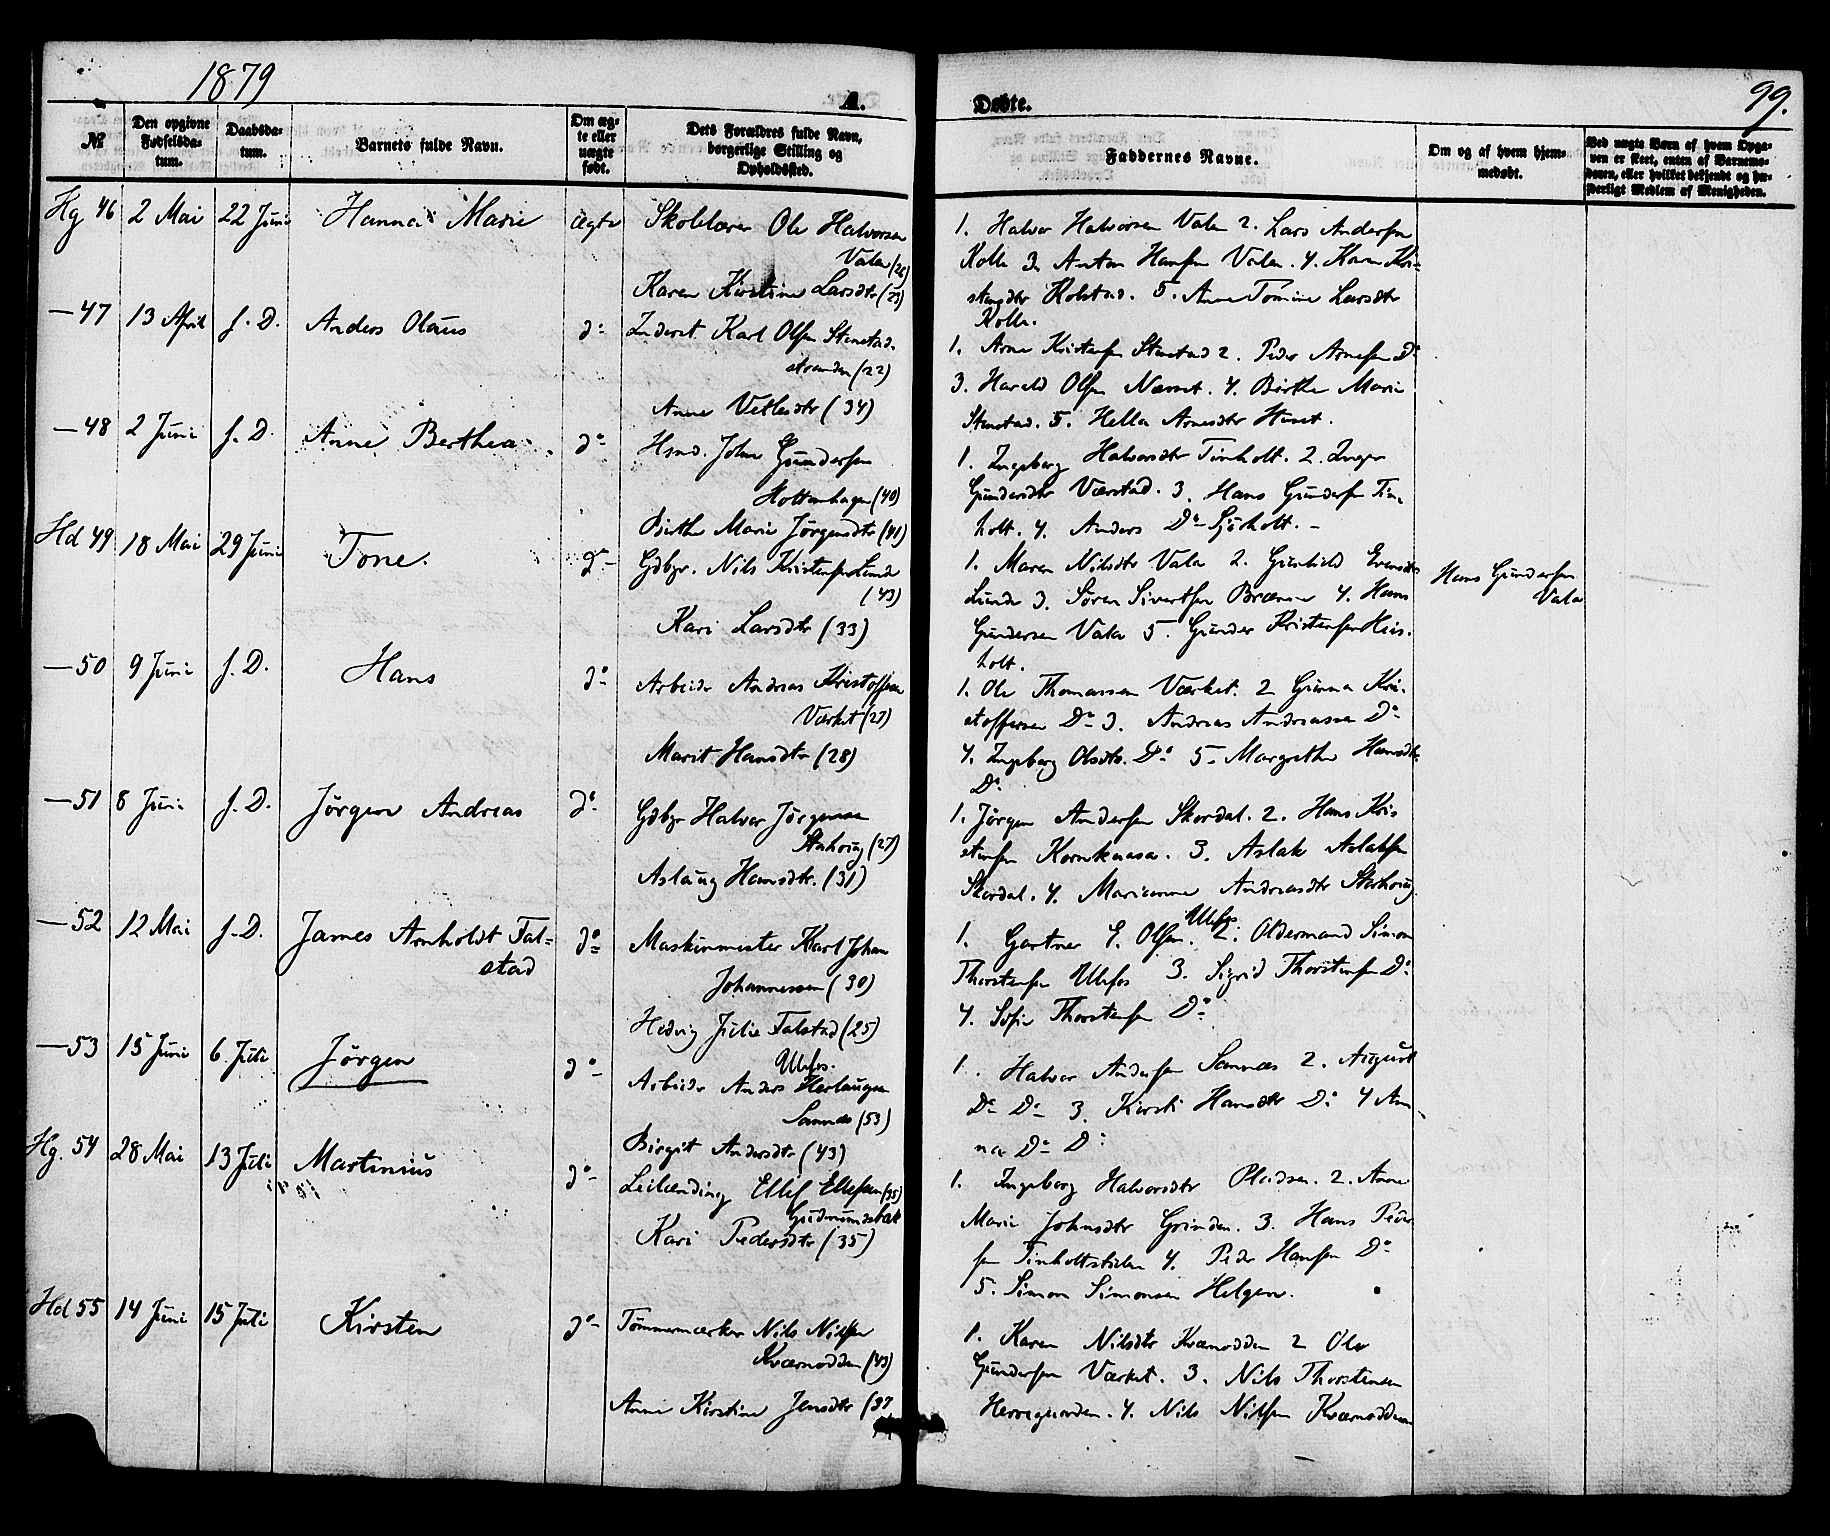 1879
A.
Døbte.
99.
№
Den opgivne Fødselsda-tum.
Daabsda-tum.
Barnets fulde Navn.
Om æg-te eller uægte født.
Dets Forældres fulde Navn, borgerlige Stilling og Opholdssted.
Faddernes Navne.
Om og af hvem hjem-medøbt.
Ved uægte Børn af hvem Opga-ven er skeet, enten af Barnemo-deren, eller hvilket bekjendt og hæ-derligt Medlem af Menigheden.
Hg 46 2 Mai 22 Juni Hanna Marie ægte
Skolelærer Ole Halvorsen
Vala (26)
Karen Kirstine Larsdtr (23)
1. Halvor Halvorsen Vala 2. Lars Andersen
Kolle 3. Anton Hansen Vala. 4. Karen Kri-
stensdtr Kolstad. 5. Anne Tomine Larsdtr
Kolle.
—47 13 April s. D. Anders Olaus do
Inderst Karl Olsen Stenstad-
stranden (22)
Anne Vetlesdtr (34)
1. Arne Kristensen Stenstad 2. Peder Arnesen Do
3. Harald Olsen Næset. 4. Birthe Marie
Stenstad. 5. Hella Arnesdtr
—48 2 Juni s. D. Anne Berthea do
Hsmd. John Gundersen
Hottenhagen (40)
Birthe Marie Jørgensdtr (41)
1. Ingeborg Halvorsdtr Tinholt. 2. Inger
Gundersdtr Værstad. 3. Hans Gundersen Tin-
holt. 4. Anders Do Sjöholt. –
Hd 49 18 Mai 29 Juni Tone. do
Gdbgr. Nils Kristensen Lunde
(43)
Kari Larsdtr (33)
1. Maren Nilsdtr Vala 2. Gunhild Evensdtr
Lunde 3. Søren Sivertsen Brænne 4. Hans
Gundersen Vala 5. Gunder Kristensen Heis-
holt.
Hans Gundersen
Vala
—50 9 Juni s. D. Hans do
Arbeider Andreas Kristoffersen
Værket (27)
Marit Hansdtr (28)
1. Ole Thomassen Værket. 2 Gunna Kri-
stoffersen Do 3. Andreas Andreassen Do
4. Ingeborg Olsdtr. Do 5 Margrethe Hansdtr
Do
—51 8 Juni s. D. Jørgen Andreas do
Gdbgr Halvor Jørgensen
(27)
Aslaug Hansdtr. (31)
1. Jørgen Andersen Skordal. 2. Hans Kri-
stensen Kornkaasa. 3. Aslak Aslaksen
Skordal. 4. Marianne Andreasdtr
—52 12 Mai s. D. James Arnholdt Tal-
stad do
Maskinmester Karl Johan
Johannessen (30)
Hedvig Julie Talstad (25)
Ulefos.
1. Gartner E. Olsen Ulefos 2. Oldermand Simon
Thorstensen Ulefos 3. Sigrid Thorstensen Do
4. Sofie Thorstensen Do
—53 15 Juni 6 Juli Jørgen do
Arbeider Anders Herlaugsen
Sannes (53)
Birgit Andersdtr (43)
1. Halvor Andersen Sannæs 2. August
Do Do 3. Kirsti Hansdtr Do 4 An-
na Do Do
Hg. 54 28 Mai 13 Juli Martinius do
Leilænding Ellef Ellefsen (35)
Gudmundsbæk
Kari Pedersdtr (35)
1. Ingeborg Halvorsdtr Pleidsen. 2. Anne
Marie Johnsdtr Grinden. 3. Hans Peder
sen Tinholtstulen 4. Peder Hansen Do
5. Simon Simonsen Helgen.
Hd 55 14 Juni 15 Juli Kirsten do
Tømmermærker Nils Nilsen
Kværnodden (43)
Anne Kirstine Jensdtr (37
1. Karen Nilsdtr Kværnodden 2 Ole
Gundersen Værket. 3. Nils Thorstensen
Herregaarden. 4. Nils Nilsen Kværnodden